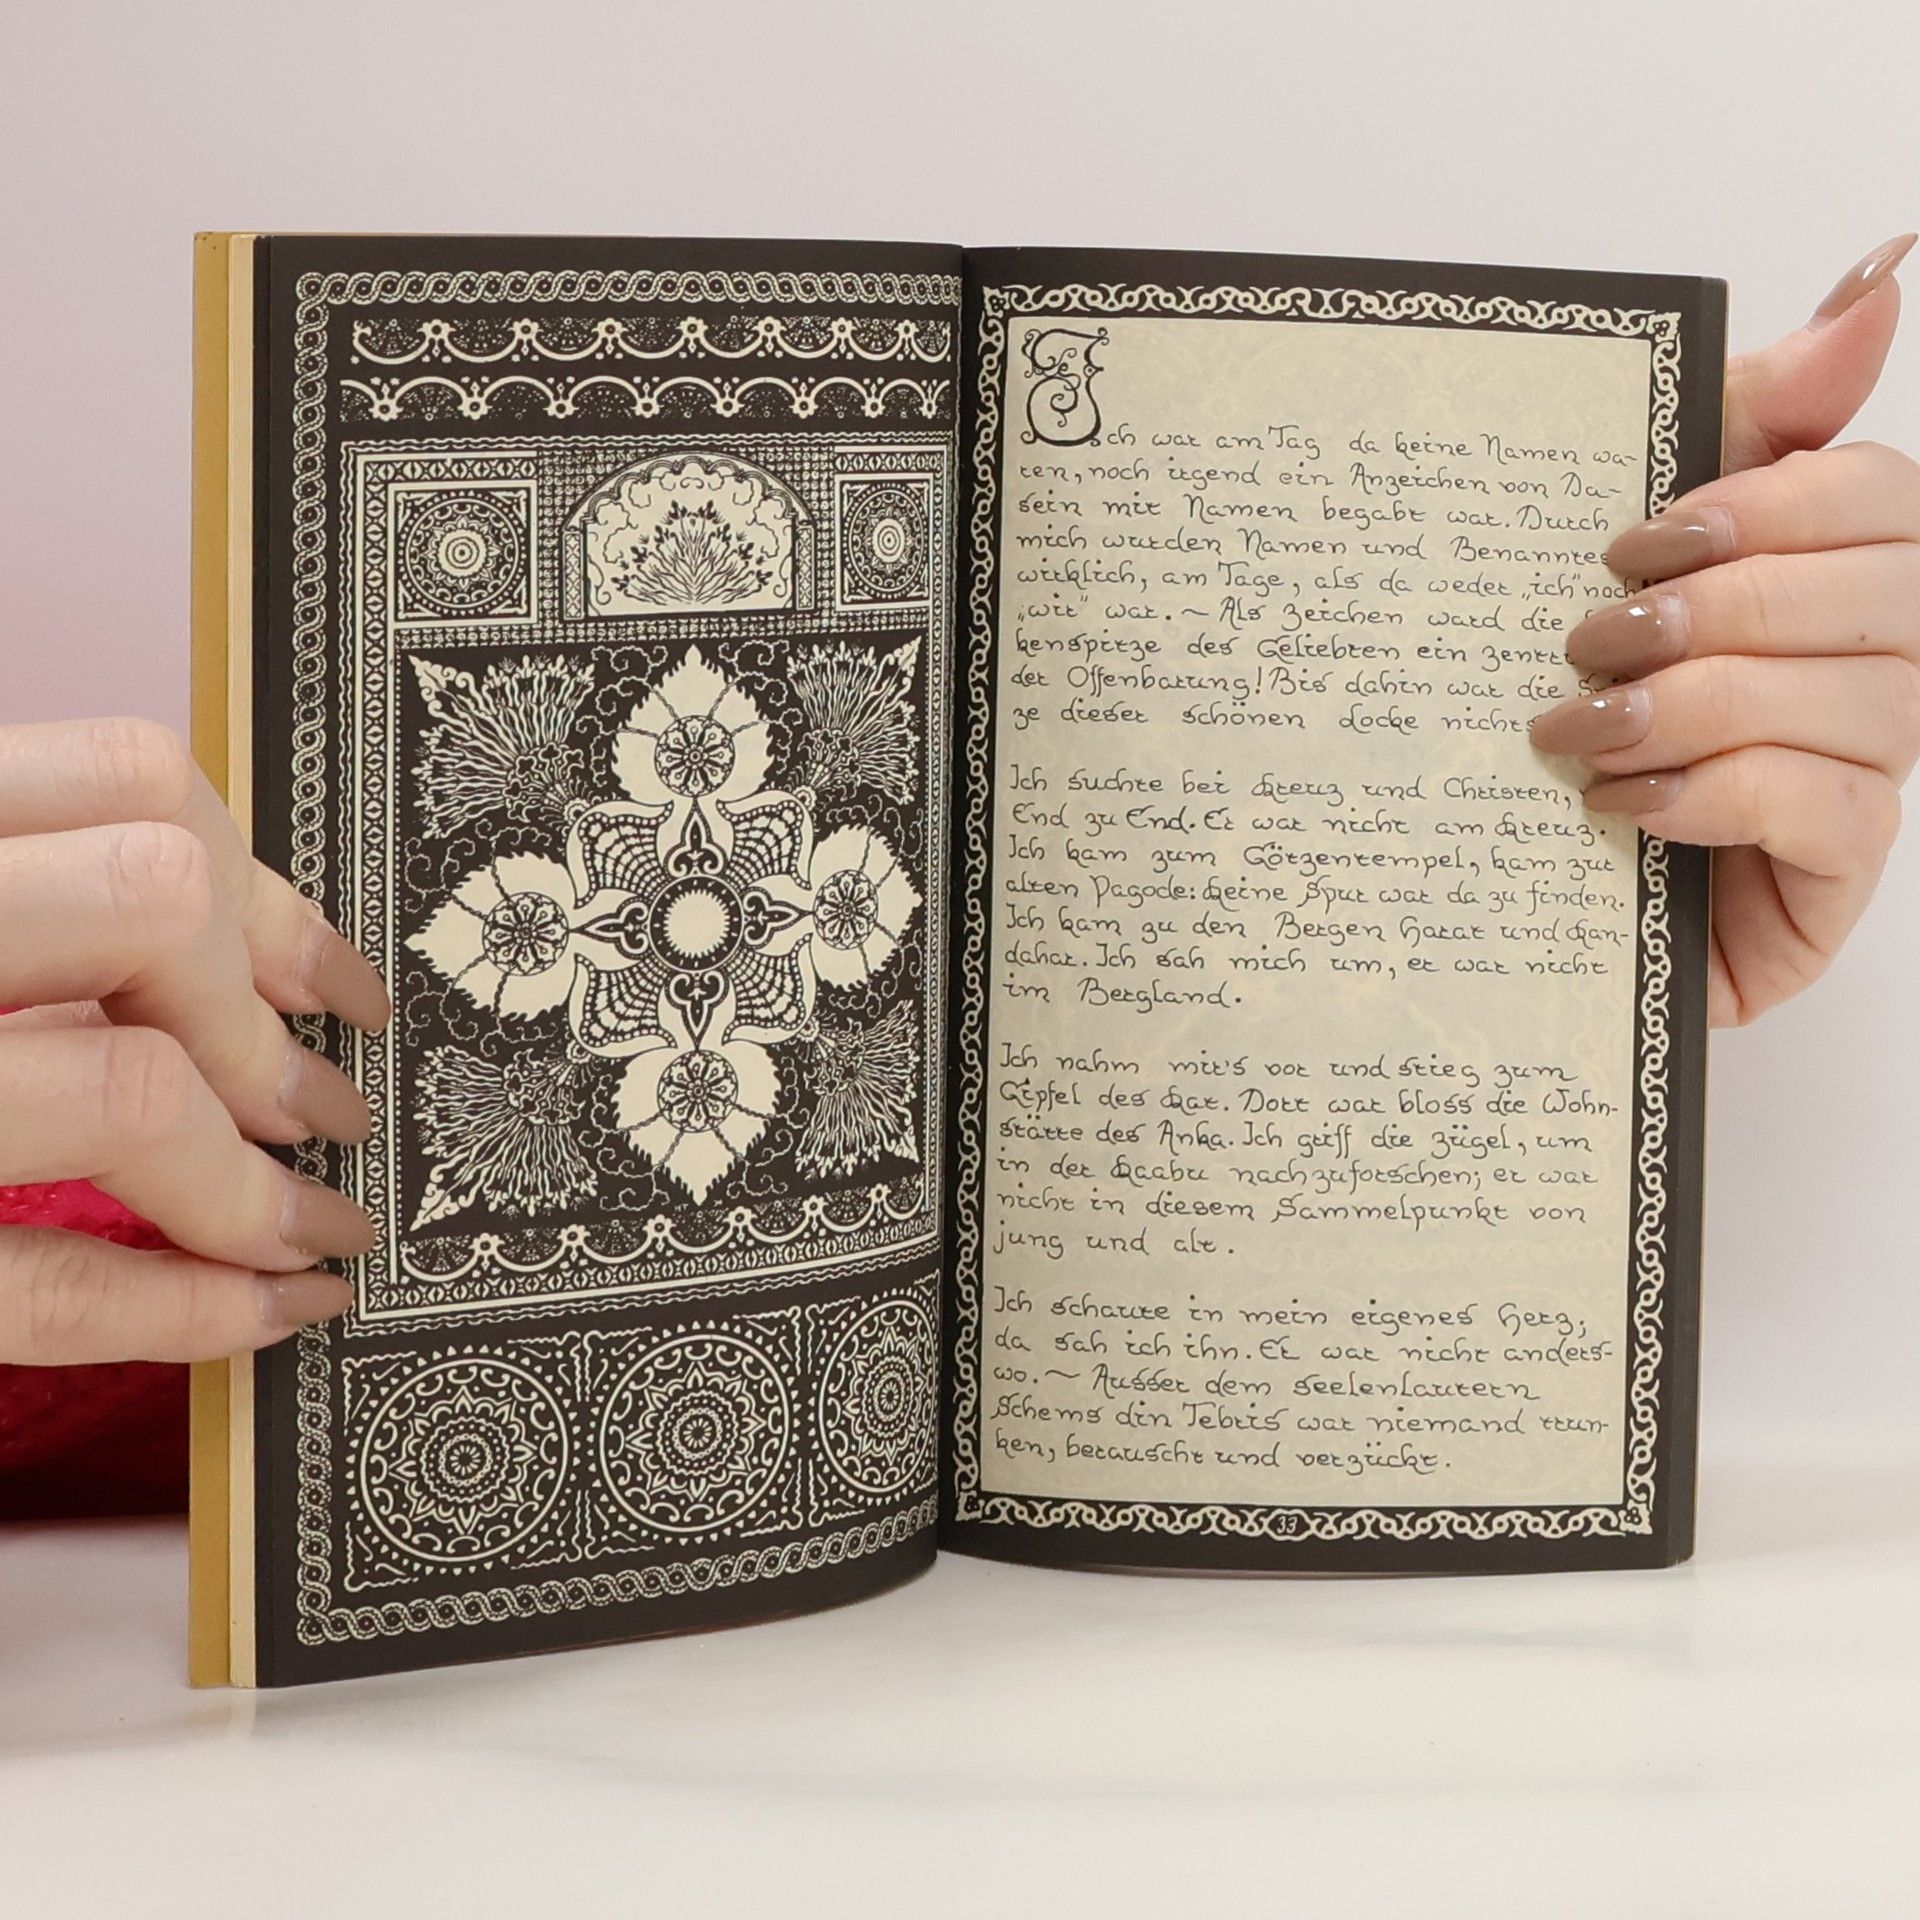 Ich war am Tag da keine Namen wa-
ren, noch irgend ein Anzeichen von Da-
sein mit Namen begabt war. Durch
mich wurden Namen und Benanntes
wirklich, am Tage, als da weder „ich" noch
„wir" war. ~ Als Zeichen ward die
kenspitze des Geliebten ein
der Offenbarung! Bis dahin war die
ze dieser schönen Locke nichts
Ich suchte bei Kreuz und Christen,
End zu End. Er war nicht am Kreuz.
Ich kam zum Götzentempel, kam zur
alten Pagode: Keine Spur war da zu finden.
Ich kam zu den Bergen Harat und Kan-
dahar. Ich sah mich um, er war nicht
im Bergland.
Ich nahm mir's vor und stieg zum
Gipfel des Kar. Dort war bloss die Wohn-
stätte des Anka. Ich griff die Zügel, um
in der Kaabu nachzuforschen; er war
nicht in diesem Sammelpunkt von
jung und alt.
Ich schaute in mein eigenes Herz;
da sah ich ihn. Er war nicht anders-
wo. ~ Ausser dem seelenlautern
Schems din Tebris war niemand trun-
ken, berauscht und verzückt.
33